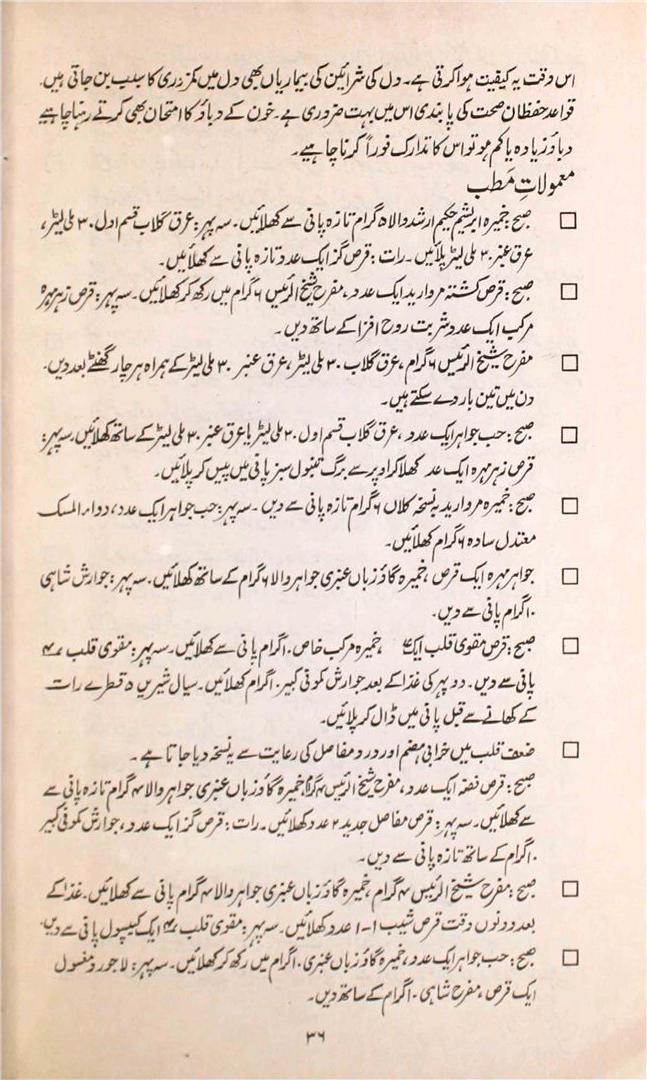 اس وقت یہ کیفیت ہوا کرتی ہے۔ دل کی شرائین کی بیماریاں بھی دل میں کمزوری کا سبب بن جاتی ہیں۔
قواعد حفظان صحت کی پابندی اس میں بہت ضروری ہے۔ خون کے دباؤ کا امتحان بھی کرتے رہنا چاہیے
دباؤ زیادہ یا کم ہو تو اس کا تدارک فوراً کرنا چاہیے۔
معمولاتِ مَطب
□ صبح: خمیرہ ابریشم حکیم ارشد والا ۵ گرام تازہ پانی سے کھلائیں۔ سہ پہر: عرق گلاب قسم اول ۳۰ ملی لیٹر،
عرق عنبر ۳۰ ملی لیٹر پلائیں۔ رات: قرص گز ایک عدد تازہ پانی سے کھلائیں۔
□ صبح: قرص کشتہ مروارید ایک عدد، مفرح شیخ الرئیس ۶ گرام میں رکھ کر کھلائیں۔ سہ پہر: قرص زہر مہرہ
مرکب ایک عدد شربت روح افزا کے ساتھ دیں۔
□ مفرح شیخ الرئیس ۶ گرام، عرق گلاب ۳۰ ملی لیٹر، عرق عنبر ۳۰ ملی لیٹر کے ہمراہ ہر چار گھنٹے بعد دیں۔
دن میں تین بار دے سکتے ہیں۔
□ صبح: حب جواہر ایک عدد، عرق گلاب قسم اول ۳۰ ملی لیٹر یا عرق عنبر ۳۰ ملی لیٹر کے ساتھ کھلائیں۔ سہ پہر:
قرص زہر مہرہ ایک عدد کھلا کر اوپر سے برگ تنبول سبز پانی میں پیس کر پلائیں۔
□ صبح: خمیرہ مروارید بہ نسخہ کلاں ۶ گرام تازہ پانی سے دیں۔ سہ پہر: حب جواہر ایک عدد، دواء المسک
معتدل سادہ ۶ گرام کھلائیں۔
□ جواہر مہرہ ایک قرص، خمیرہ گاؤ زباں عنبری جواہر والا ۶ گرام کے ساتھ کھلائیں۔ سہ پہر: جوارش شاہی
۱۰ گرام پانی سے دیں۔
□ صبح: قرص مقوی قلب ایک خمیرہ مرکب خاص ۱۰ گرام پانی سے کھلائیں۔ سہ پہر: مقوی قلب
پانی سے دیں۔ دوپہر کی غذا کے بعد جوارش کمونی کبیر ۱۰ گرام کھلائیں۔ سیال شیریں ۵ قطرے رات
کے کھانے سے قبل پانی میں ڈال کر پلائیں۔
□ ضعف قلب میں خرابی ہضم اور درد مفاصل کی رعایت سے یہ نسخہ دیا جاتا ہے۔
صبح: قرص نقرہ ایک عدد، مفرح شیخ الرئیس ۳ گرام، خمیرہ گاؤ زباں عنبری جواہر والا ۳ گرام تازہ پانی سے
سے کھلائیں۔ سہ پہر: قرص مفاصل جدید ۲ عدد کھلائیں۔ رات: قرص گز ایک عدد، جوارش کمونی کبیر
۱۰ گرام کے ساتھ تازہ پانی سے دیں۔
□ صبح: مفرح شیخ الرئیس ۳ گرام، خمیرہ گاؤ زباں عنبری جواہر والا ۳ گرام پانی سے کھلائیں۔ غذا کے
بعد دونوں وقت قرص شیب ۱-۱ عدد کھلائیں۔ سہ پہر: مقوی قلب ایک کیپسول پانی سے دیں۔
□ صبح: حب جواہر ایک عدد، خمیرہ گاؤ زباں عنبری ۱۰ گرام میں رکھ کر کھلائیں۔ سہ پہر: لاجورد مغسول
ایک قرص، مفرح شاہی ۱۰ گرام کے ساتھ دیں۔
۳۶